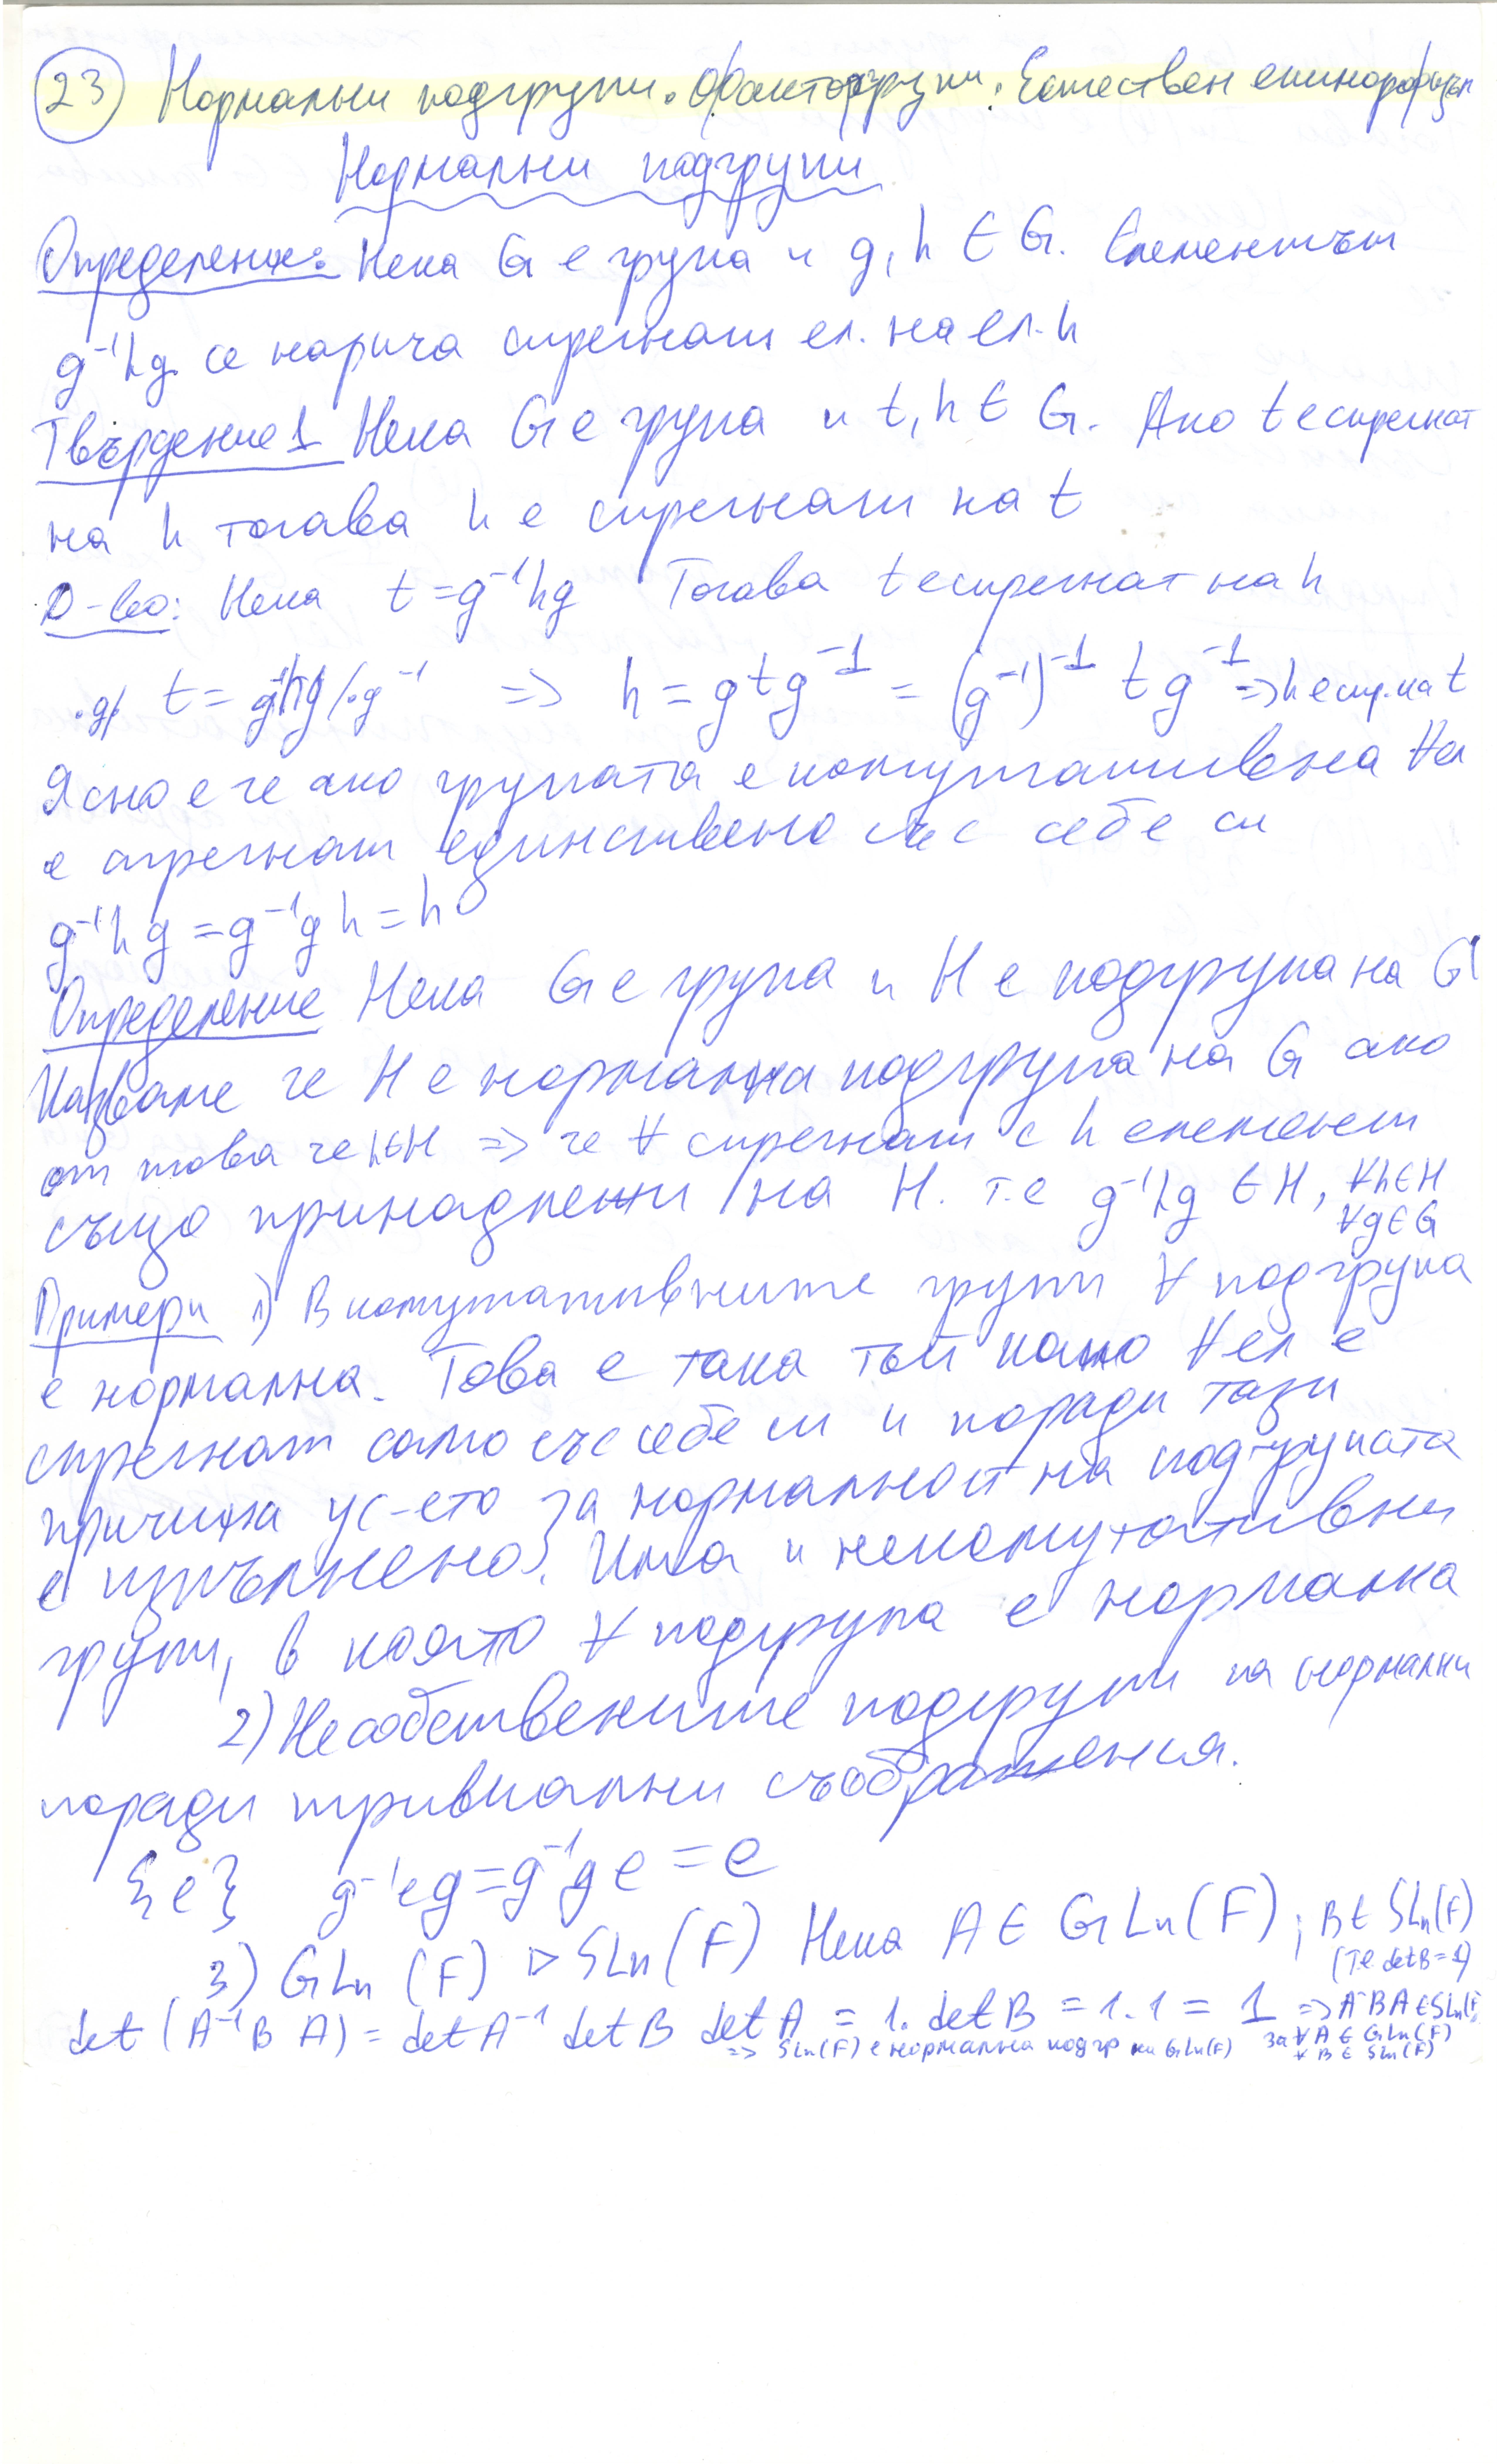 23 Нормални подгрупи. Факторгрупи. Естествен епиморфизъм
Нормални подгрупи
Определение: Нека G е група и g, h ∈ G. Елементът
g⁻¹hg се нарича спрегнат ел. на ел. h
Твърдение 1 Нека G е група и t, h ∈ G. Ако t е спрегнат
на h тогава h е спрегнат на t
Д-во: Нека t = g⁻¹hg Тогава t е спрегнат на h
.g/ t = g⁻¹hg /.g⁻¹ => h = gtg⁻¹ = (g⁻¹)⁻¹ t g⁻¹ => h е спр. на t
Ясно е че ако групата е комутативна ∀ ел
е спрегнат единствено със себе си
g⁻¹hg = g⁻¹gh = h
Определение Нека G е група и H е подгрупа на G
Казваме че H е нормална подгрупа на G ако
от това че h∈H => че ∀ спрегнат с h елемент
също принадлежи на H. т.е g⁻¹hg ∈ H, ∀h∈H
∀g∈G
Примери 1) В комутативните групи ∀ подгрупа
е нормална. Това е така тъй като ∀ ел е
спрегнат само със себе си и поради тази
причина ус-ето за нормалност на подгрупата
е изпълнено. Има и некомутативни
групи, в които ∀ подгрупа е нормална
2) Несобствените подгрупи са нормални
поради тривиални съображения.
{e} g⁻¹eg = g⁻¹ge = e
3) GLn (F) ▷ SLn(F) Нека A ∈ GLn(F) ; B ∈ SLn(F)
(т.е. detB = 1)
det (A⁻¹B A) = det A⁻¹ det B det A = 1. det B = 1.1 = 1 => A⁻¹BA ∈ SLn(F)
=> SLn(F) е нормална подгр на GLn(F) за ∀ A ∈ GLn(F)
∀ B ∈ SLn(F)